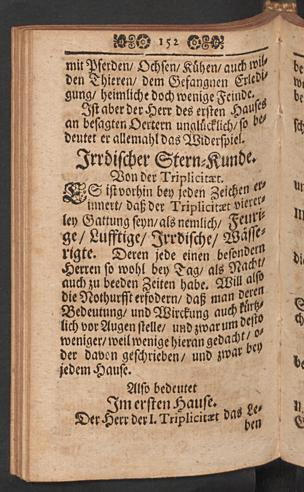 152
mit Pferden/ Ochsen/ Kühen/ auch wil-
den Thieren/ dem Gefangnen Erledi-
gung/ heimliche doch wenige Feinde.
Ist aber der Herr des ersten Hauses
an besagten Oertern unglücklich/ so be-
deutet er allemahl das Widerspiel.
Irrdischer Stern-Kunde.
Von der Triplicitæt.
ES ist vorhin bey jeden Zeichen er-
innert/ daß der Triplicitæt vierer-
ley Gattung seyn/ als nemlich/ Feuri-
ge/ Lufftige/ Irrdische/ Wässe-
rigte. Deren jede einen besondern
Herren so wohl bey Tag/ als Nacht/
auch zu beeden Zeiten habe. Will also
die Nothurfft erfodern/ daß man deren
Bedeutung/ und Wirckung auch kürtz-
lich vor Augen stelle/ und zwar um desto
weniger/ weil wenige hieran gedacht/ o-
der davon geschrieben/ und zwar bey
jedem Hause.
Also bedeutet
Im ersten Hause.
Der Herr der I. Triplicitæt das Le-
ben